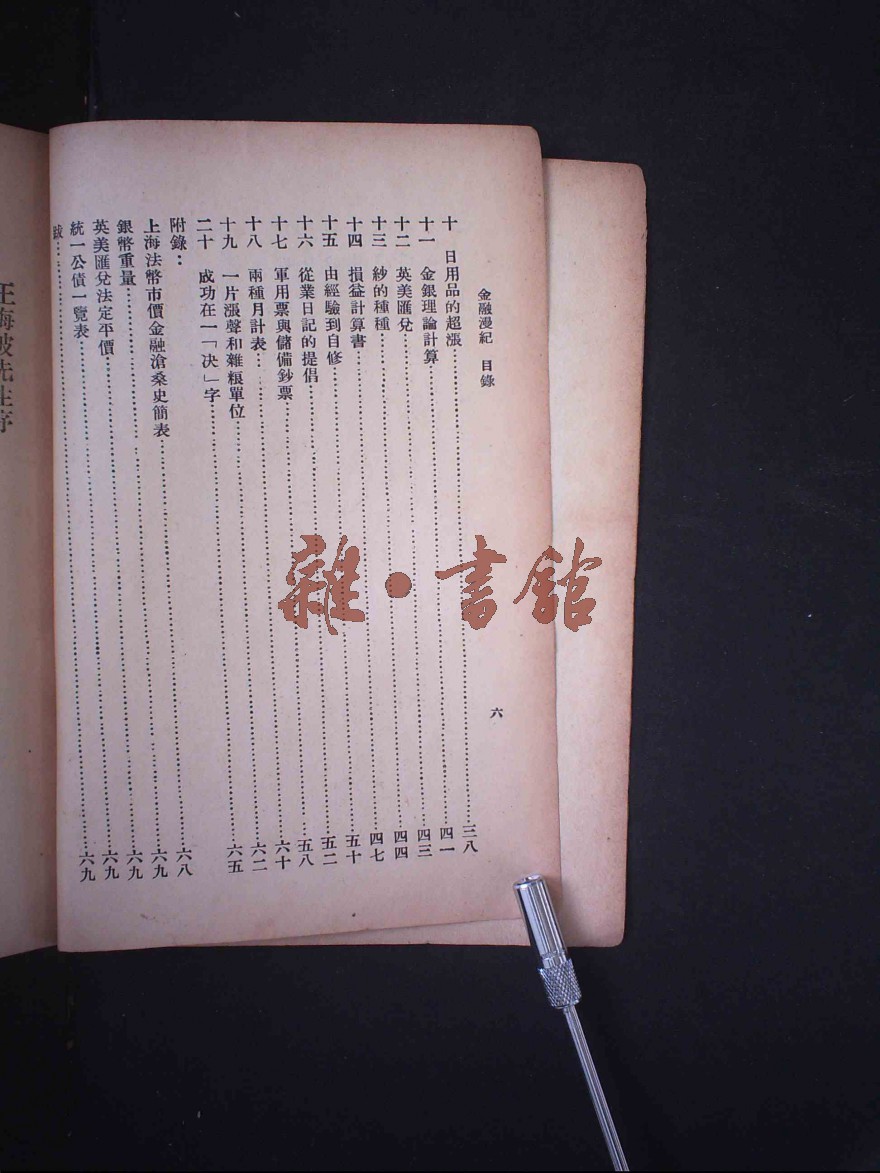 金融漫紀 目錄
六
十 日用品的超漲……三八
十一 金銀理論計算……四一
十二 英美匯兌……四三
十三 紗的種種……四四
十四 損益計算書……四七
十五 由經驗到自修……五十
十六 從業日記的提倡……五二
十七 軍用票與儲備鈔票……五八
十八 兩種月計表……六十
十九 一片漲聲和雜粮單位……六二
二十 成功在一「决」字……六五
附錄：
上海法幣市價金融滄桑史簡表……六八
銀幣重量……六九
英美匯兌法定平價……六九
統一公債一覽表……六九
跋……六九
海波先生序
雜·書館